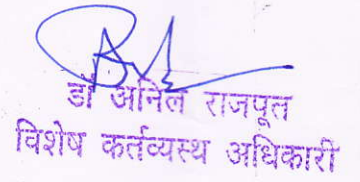 डॉ अनिल राजपूत
विशेष कर्तव्यस्थ अधिकारी